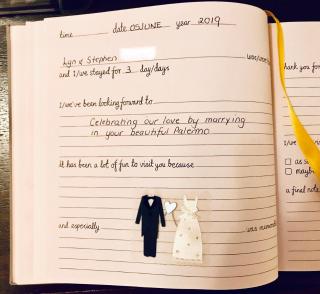 time date 05JUNE year 2019
Lyn & Stephen was/were
and I/we stayed for 3 day/days
I/we've been looking forward to
Celebrating our love by marrying
in your beautiful Palermo
It has been a lot of fun to visit you because
and especially was
hank you for
as s
mayb
a final note